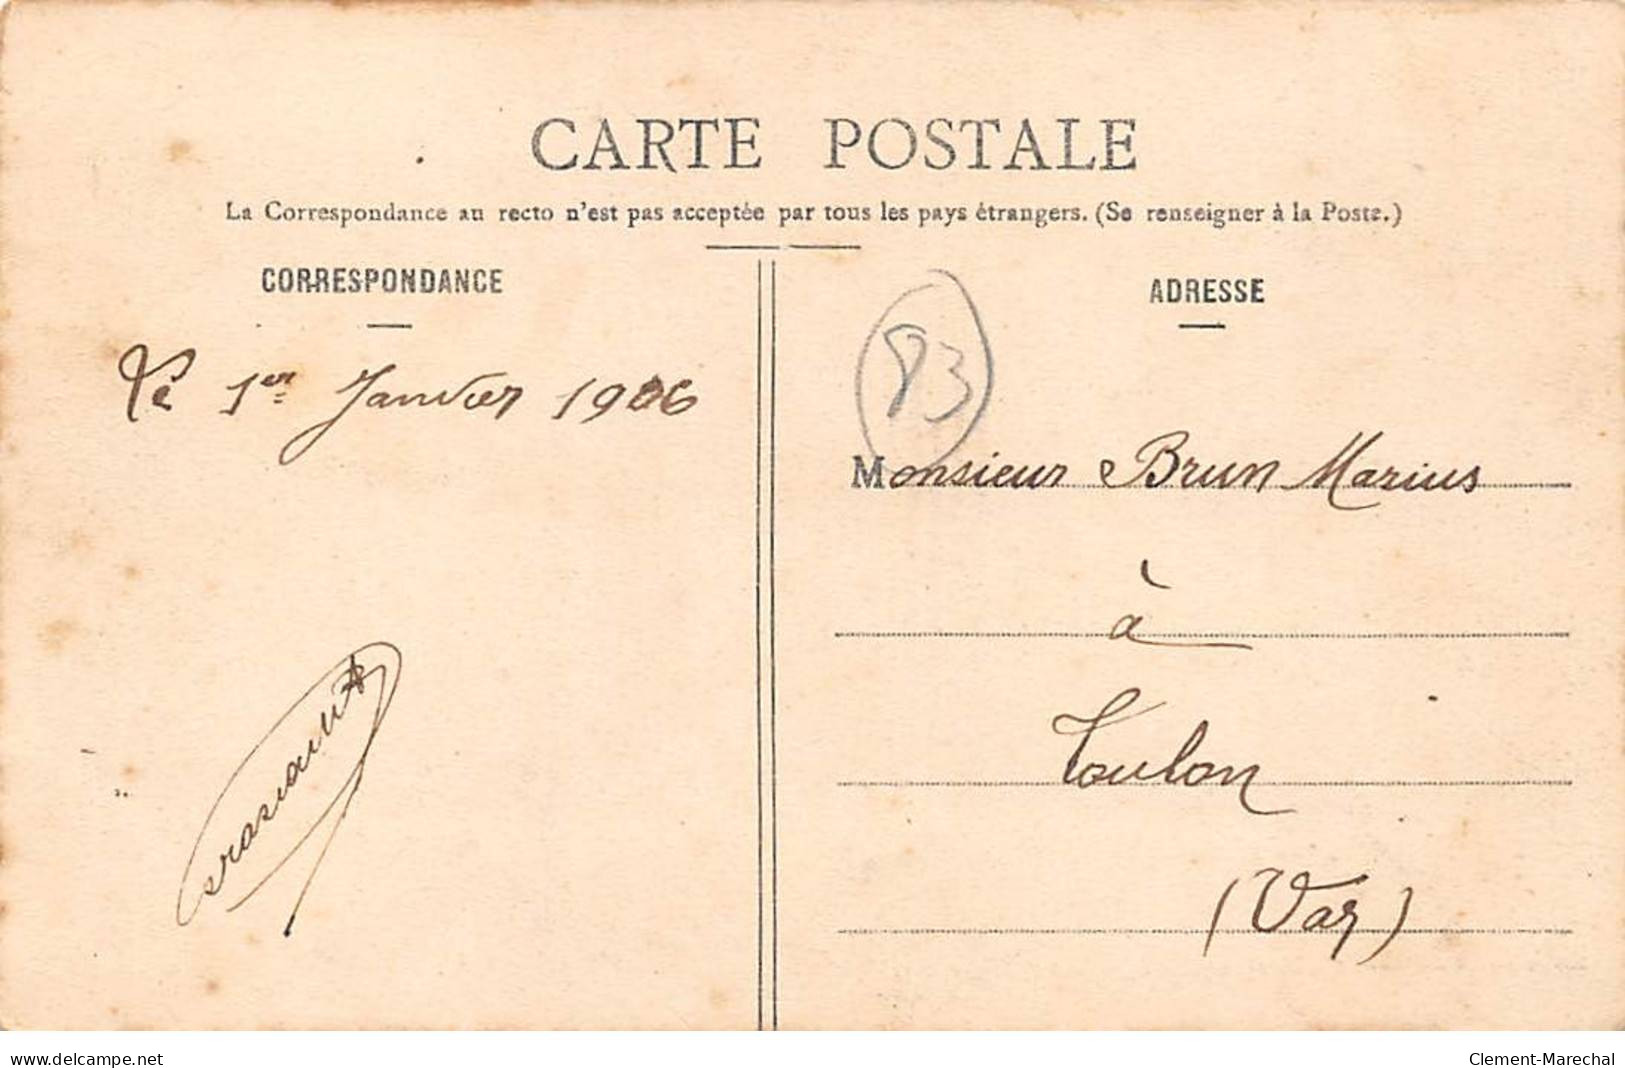 CARTE POSTALE
La Correspondance au recto n'est pas acceptée par tous les pays étrangers. (Se renseigner à la Poste.)
CORRESPONDANCE
Le 1er Janvier 1906
ADRESSE
83
Monsieur Brun Marius
à
Toulon
(Var)
www.delcampe.net
Clement-Marechal